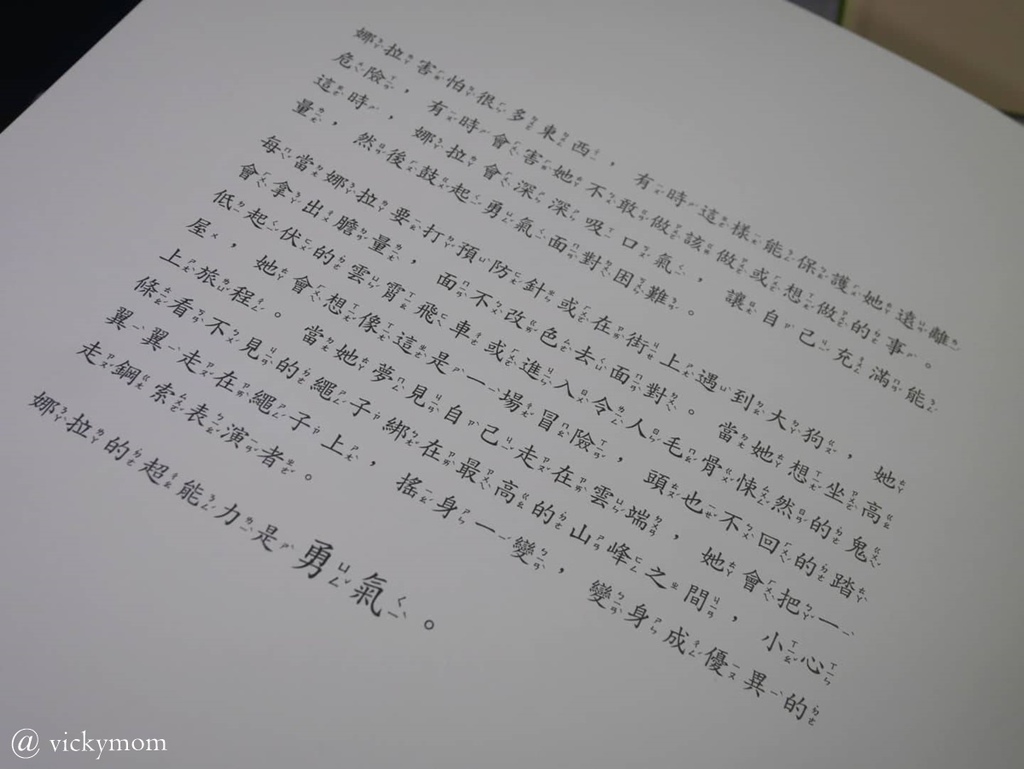 娜拉害怕很多東西，有時這樣能保護她遠離
危險，有時會害她不敢做該做或想做的事。
這時，娜拉會深深吸口氣，讓自己充滿能
量，然後鼓起勇氣面對困難。
每當娜拉要打預防針或在街上遇到大狗，她
會拿出膽量，面不改色去面對。當她想坐高
低起伏的雲霄飛車或進入令人毛骨悚然的鬼
屋，她會想像這是一場冒險，頭也不回的踏
上旅程。當她夢見自己走在雲端，她會把一
條看不見的繩子綁在最高的山峰之間，小心
翼翼走在繩子上，搖身一變，變身成優異的
走鋼索表演者。
娜拉的超能力是勇氣。
@ vickymom